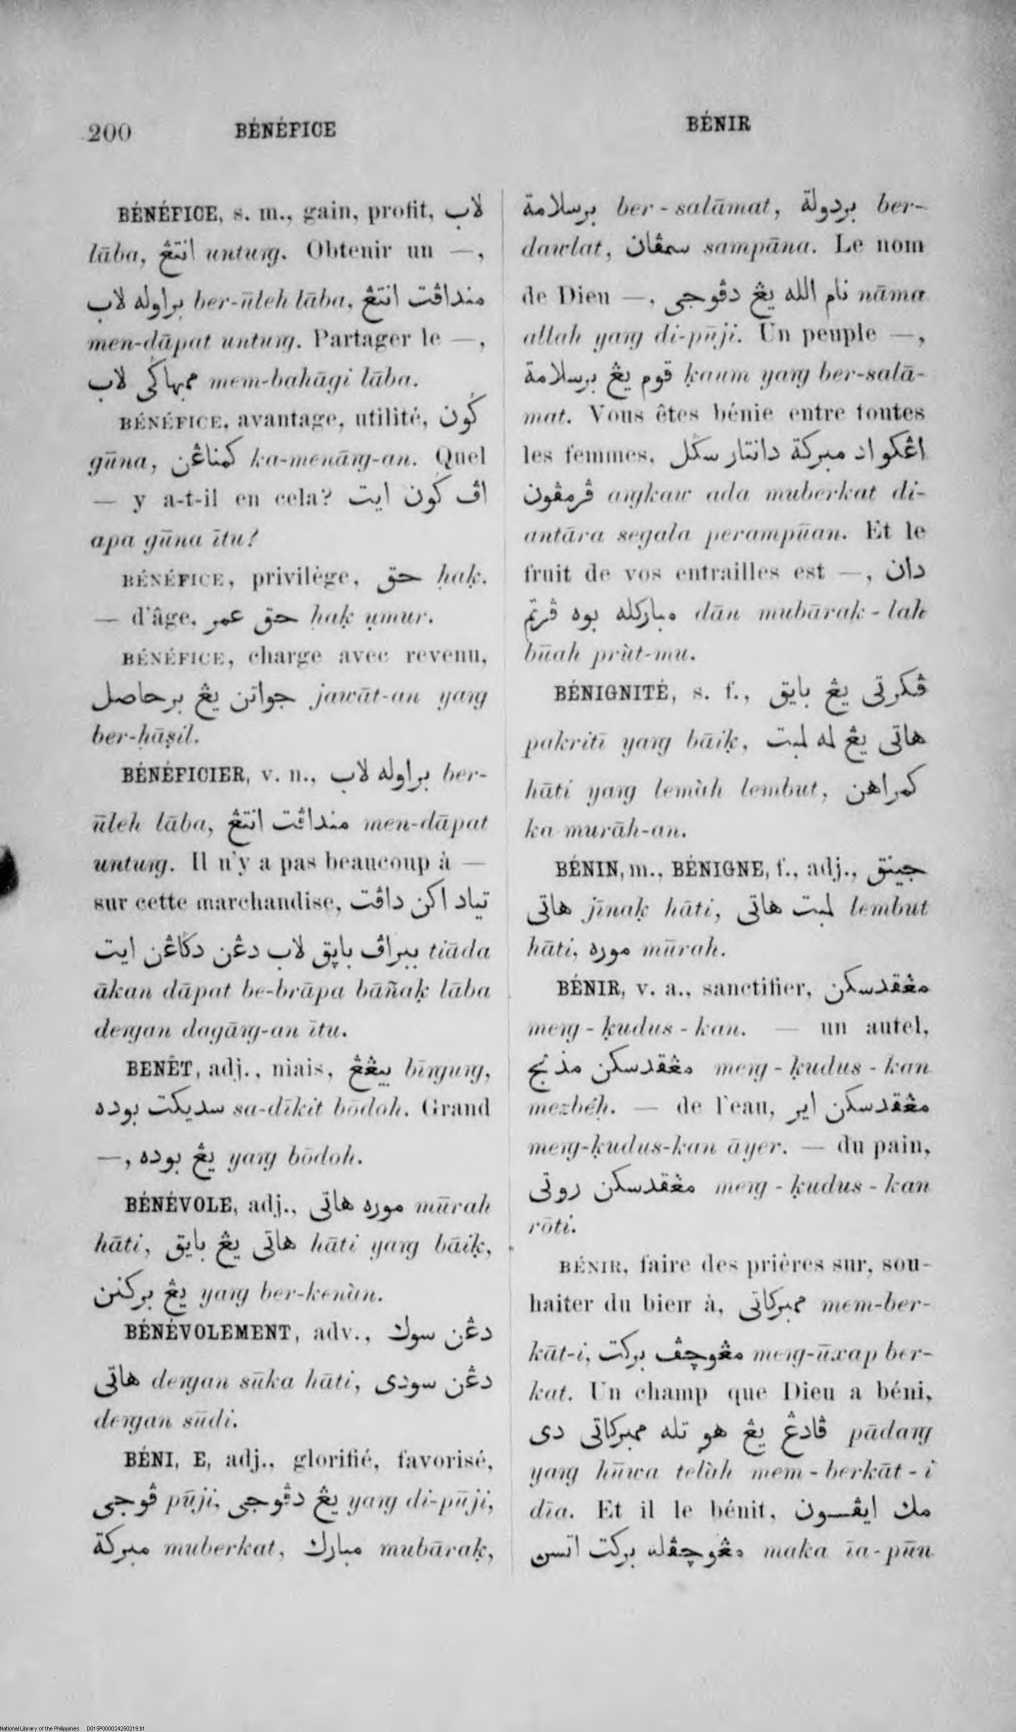 200 BÉNÉFICE BÉNIR
BÉNÉFICE, s. m., gain, profit, لاب
lāba, انتڠ untuŋ. Obtenir un —,
براوله لاب ber-ūleh lāba, منداڤت انتڠ
men-dāpat untuŋ. Partager le —,
ممبهاݢى لاب mem-bahāgi lāba.
BÉNÉFICE, avantage, utilité, ݢون
gūna, كمناڠن ka-menāŋ-an. Quel
— y a-t-il en cela? اڤ ݢون ايت
apa gūna ītu?
BÉNÉFICE, privilège, حق ḥaḳ.
— d'âge, حق عمر ḥaḳ ụmur.
BÉNÉFICE, charge avec revenu,
جواتن يڠ برحاصل jawāt-an yaŋ
ber-ḥāṣil.
BÉNÉFICIER, v. n., براوله لاب ber-
ūleh lāba, منداڤت انتڠ men-dāpat
untuŋ. Il n'y a pas beaucoup à —
sur cette marchandise, تياد اكن داڤت
ببراڤ باڽق لاب دڠن دݢاڠن ايت tiāda
ākan dāpat be-brāpa bāñaḳ lāba
deŋan dagāŋ-an ītu.
BENÊT, adj., niais, بيڠڠ bīŋuŋ,
سديكت بوده sa-dīkit bōdoh. Grand
—, يڠ بوده yaŋ bōdoh.
BÉNÉVOLE, adj., موره هاتى mūrah
hāti, هاتى يڠ بايق hāti yaŋ bāiḳ,
يڠ بركنن yaŋ ber-kenùn.
BÉNÉVOLEMENT, adv., دڠن سوك
هاتى deŋan sūka hāti, دڠن سودى
deŋan sūdi.
BÉNI, E, adj., glorifié, favorisé,
ڤوجى pūji, يڠ دڤوجى yaŋ di-pūji,
مبركة muberkat, مبارك mubāraḳ,
برسلامة ber-salāmat, بردولة ber-
dawlat, سمڤان sampāna. Le nom
de Dieu —, نام الله يڠ دڤوجى nāma
allah yaŋ di-pūji. Un peuple —,
قوم يڠ برسلامة ḳaum yaŋ ber-salā-
mat. Vous êtes bénie entre toutes
les femmes, اڠكو اد مبركة دانتار سݢل
ڤرمڤون aŋkaw ada muberkat di-
antāra segala perampūan. Et le
fruit de vos entrailles est —, دان
مباركله بوه ڤرتم dān mubārak-lah
būah prùt-mu.
BÉNIGNITÉ, s. f., ڤكرتى يڠ بايق
pakriti yaŋ bāiḳ, هاتى يڠ له لمبت
hāti yaŋ lemùh lembut, كمراهن
ka murāh-an.
BÉNIN, m., BÉNIGNE, f., adj., جينق
هاتى jīnaḳ hāti, لمبت هاتى lembut
hāti, موره mūrah.
BÉNIR, v. a., sanctifier, مڠقدسكن
meŋ-ḳudus-kan. — un autel,
مڠقدسكن مذبح meŋ-ḳudus-kan
mezbéḥ. — de l'eau, مڠقدسكن اير
meŋ-ḳudus-kan āyer. — du pain,
مڠقدسكن روتى meŋ-ḳudus-kan
rōti.
BÉNIR, faire des prières sur, sou-
haiter du bien à, ممبركاتى mem-ber-
kāt-i, مڠوچڤ بركت meŋ-ūxap ber-
kat. Un champ que Dieu a béni,
ڤادڠ يڠ هو تله ممبركاتى دى pādaŋ
yaŋ hūwa telàh mem-berkāt-i
dīa. Et il le bénit, مك ايڤسون
مڠوچڤله بركت اتسن maka īa-pūn